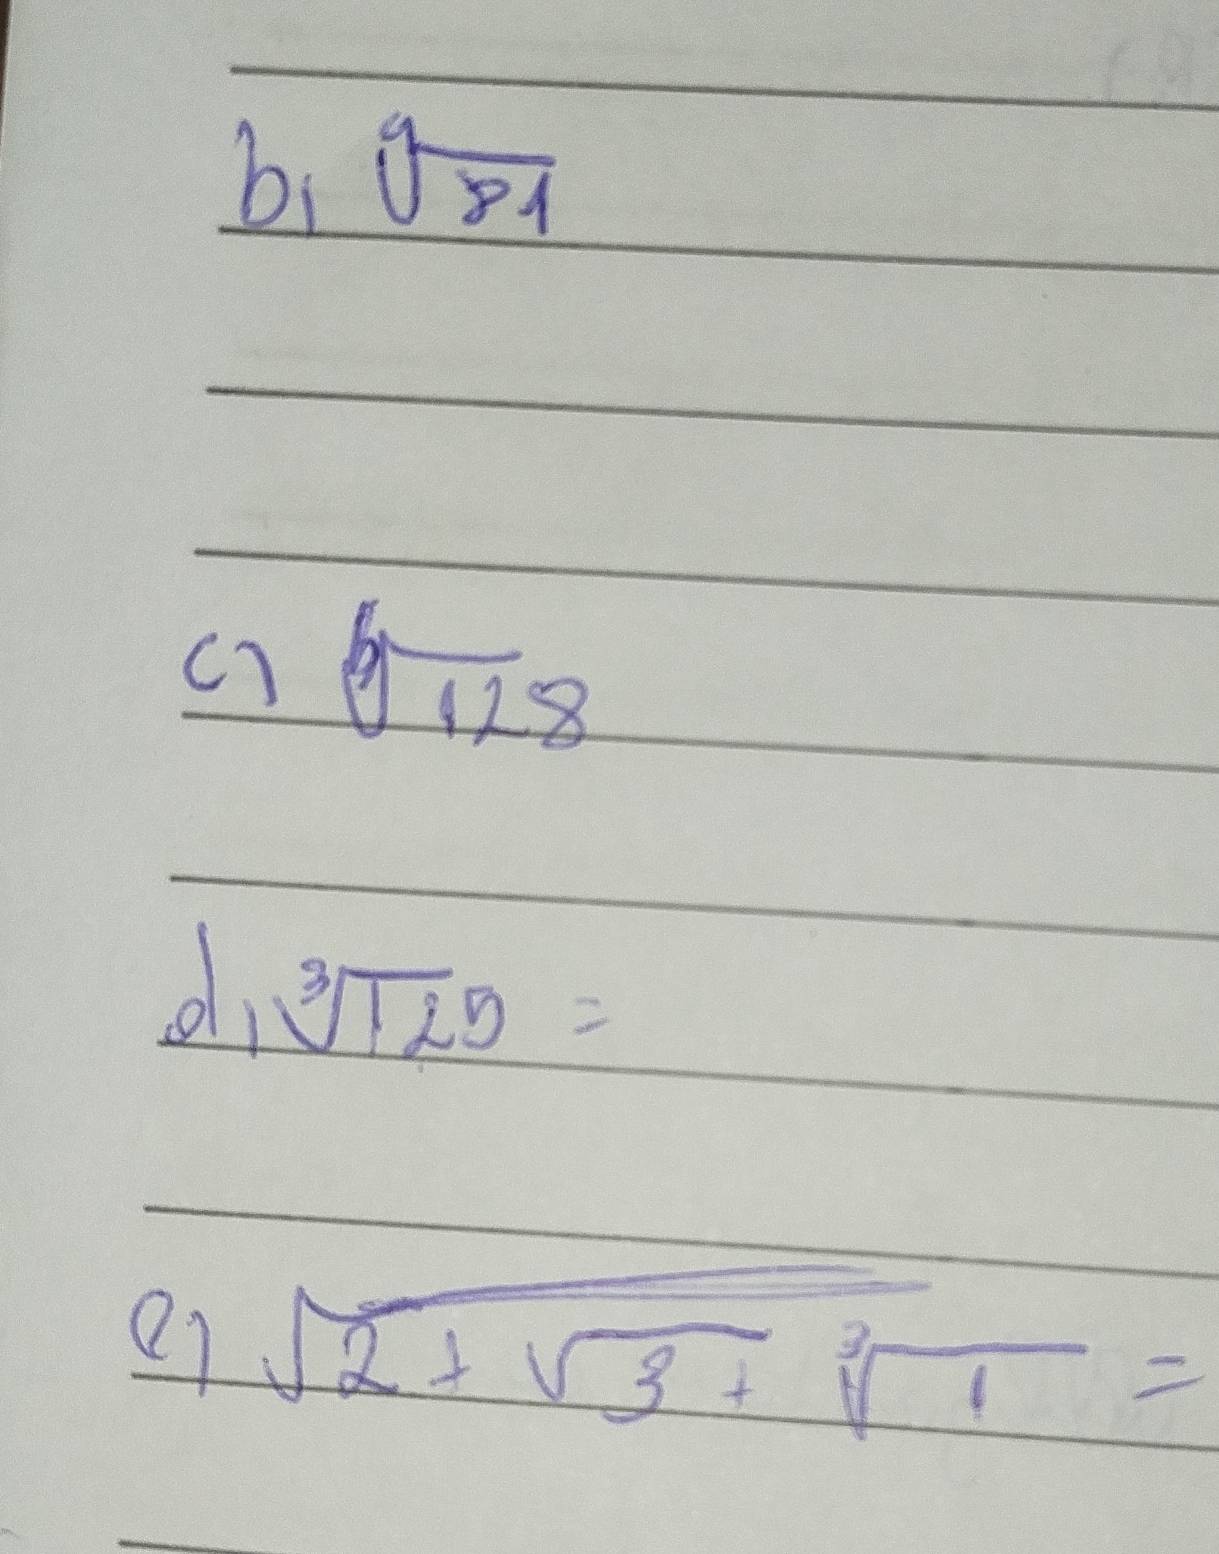 b, ⁹√81
c) ⁶√128
d, ³√125 =
e) √2 + √3 + ³√1 =